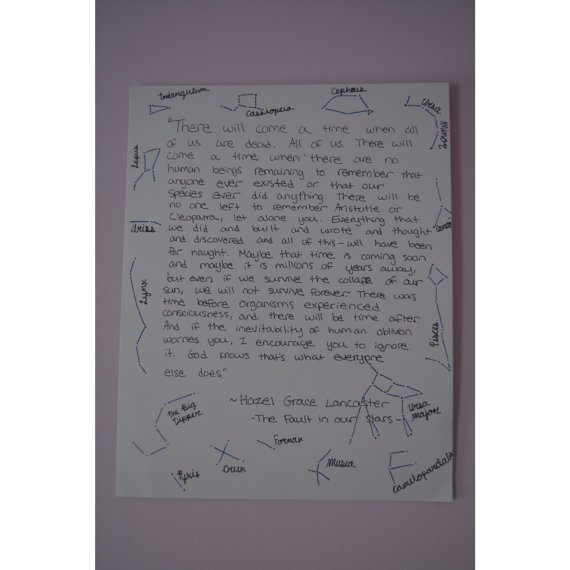 Triangulum
Cassiopeia
Cepheus
Ursa
Minor
Lepus
Aries
Lynx
"There will come a time when all
of us are dead. All of us. There will
come a time when there are no
human beings remaining to remember that
anyone ever existed or that our
species ever did anything. There will be
no one left to remember Aristotle or
Cleopatra, let alone you. Everything that
we did and built and wrote and thought
and discovered and all of this-will have been
for naught. Maybe that time is coming soon
and maybe it is millions of years away,
but even if we survive the collapse of our
sun, we will not survive forever. There was
time before organisms experienced
consciousness, and there will be time after.
And if the inevitability of human oblivion
worries you, I encourage you to ignore
it. God knows that's what everyone
else does."
~Hazel Grace Lancaster
-The Fault in our Stars-
Pisces
The Big
Dipper
Ursa
Majore
Fornax
Crux
Musca
Camelopardalis